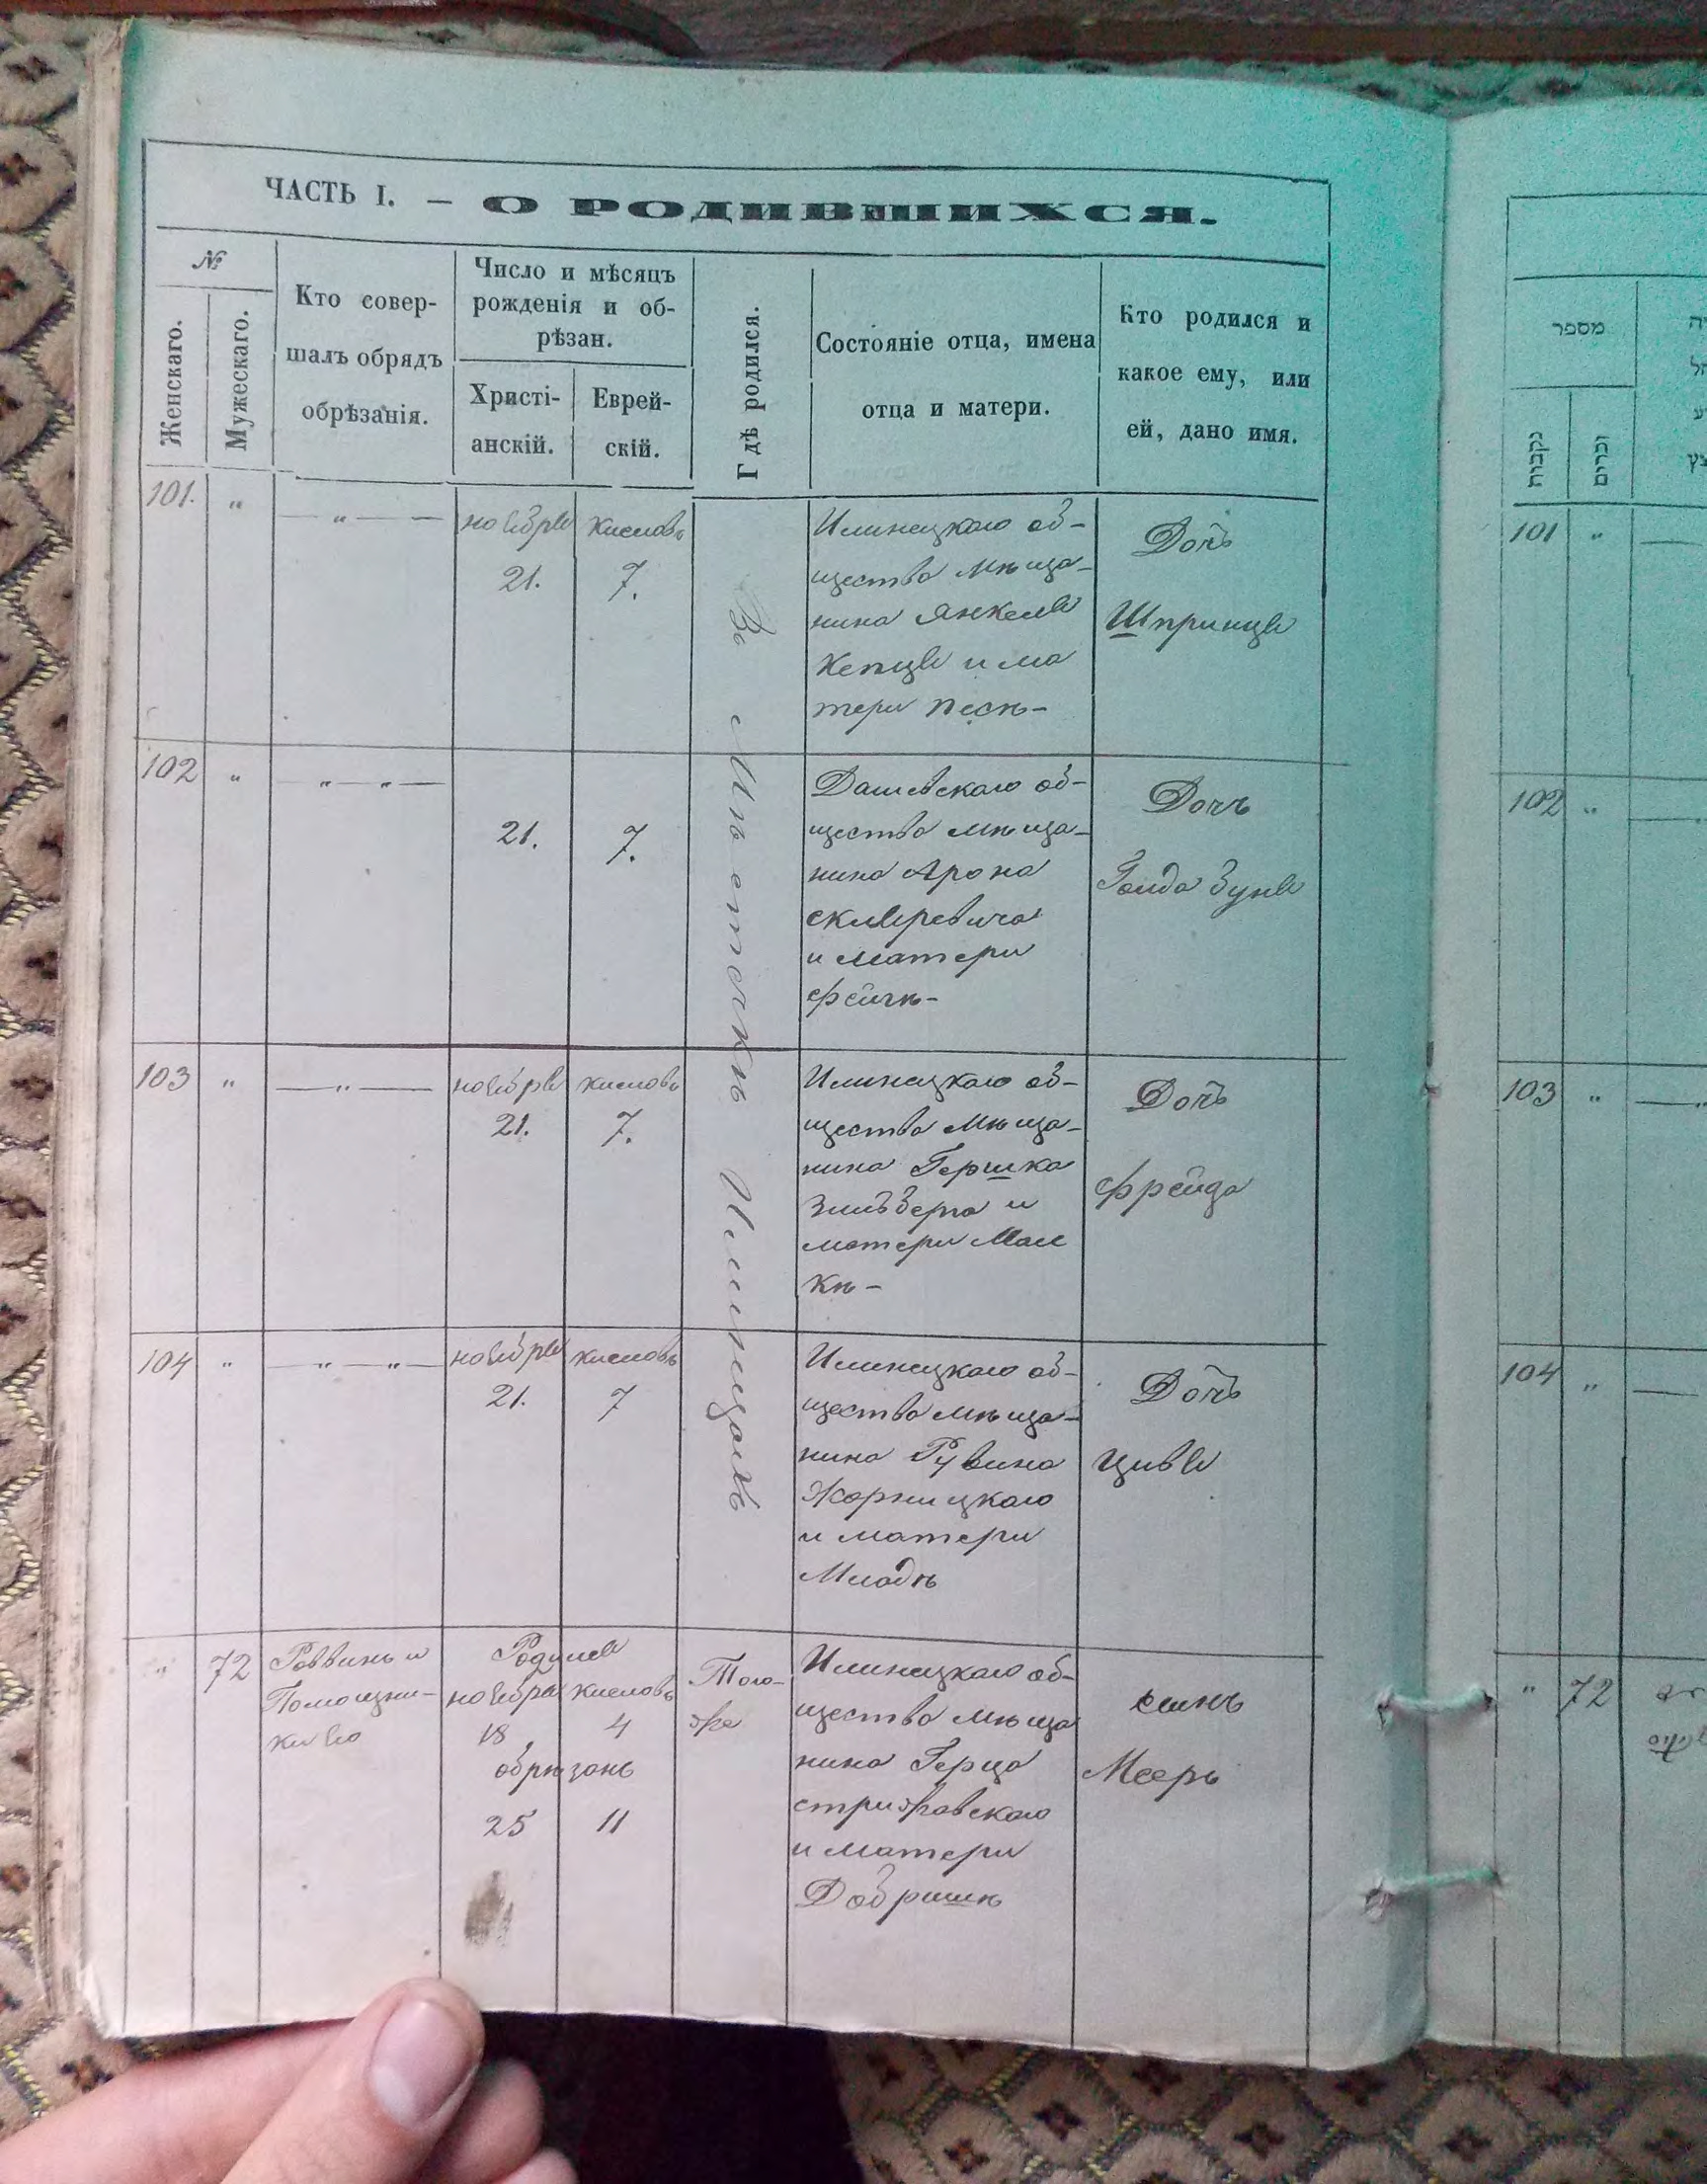 ЧАСТЬ I. — О РОДИВШИХСЯ.
№
Женскаго.
Мужескаго.
Кто совер-
шалъ обрядъ
обрѣзанія.
Число и мѣсяцъ
рожденія и об-
рѣзан.
Христі-
анскій.
Еврей-
скій.
Гдѣ родился.
Состояніе отца, имена
отца и матери.
Кто родился и
какое ему, или
ей, дано имя.
101. „ — „ — —
ноября
21.
кислова
7.
Въ Мѣстечкѣ Илинцахъ
Илинецкаго об-
щества мѣща-
нина Янкеля
и ма
тери Песѣ-
Дочь
Шпринця
102 „ — „ — „ —
21.
7.
Дашевскаго об-
щества мѣща-
нина Арона
Скляревича
и матери
Фейгѣ-
Дочь
Голда Зуня
103 „ — „ —
ноября
21.
кислова
7.
Илинецкаго об-
щества мѣща-
нина Гершка
Зильберга и
матери Мал
кѣ-
Дочь
Фрейда
104 „ — „ — „ —
ноября
21.
кислова
7
Илинецкаго об-
щества мѣща-
нина Рувина
Жорницкаго
и матери
Младѣ
Дочь
Цивя
„ 72
Раввинъ и
Помощни-
ки его
Родился
ноября
18
кислова
4
обрѣзанъ
25 11
Того-
же
Илинецкаго об-
щества мѣща
нина Герца
Стрижавскаго
и матери
Добришѣ
Сынъ
Мееръ
מספר
נקבות
זכרים
101 „
102 „
103 „
104 „
„ 72